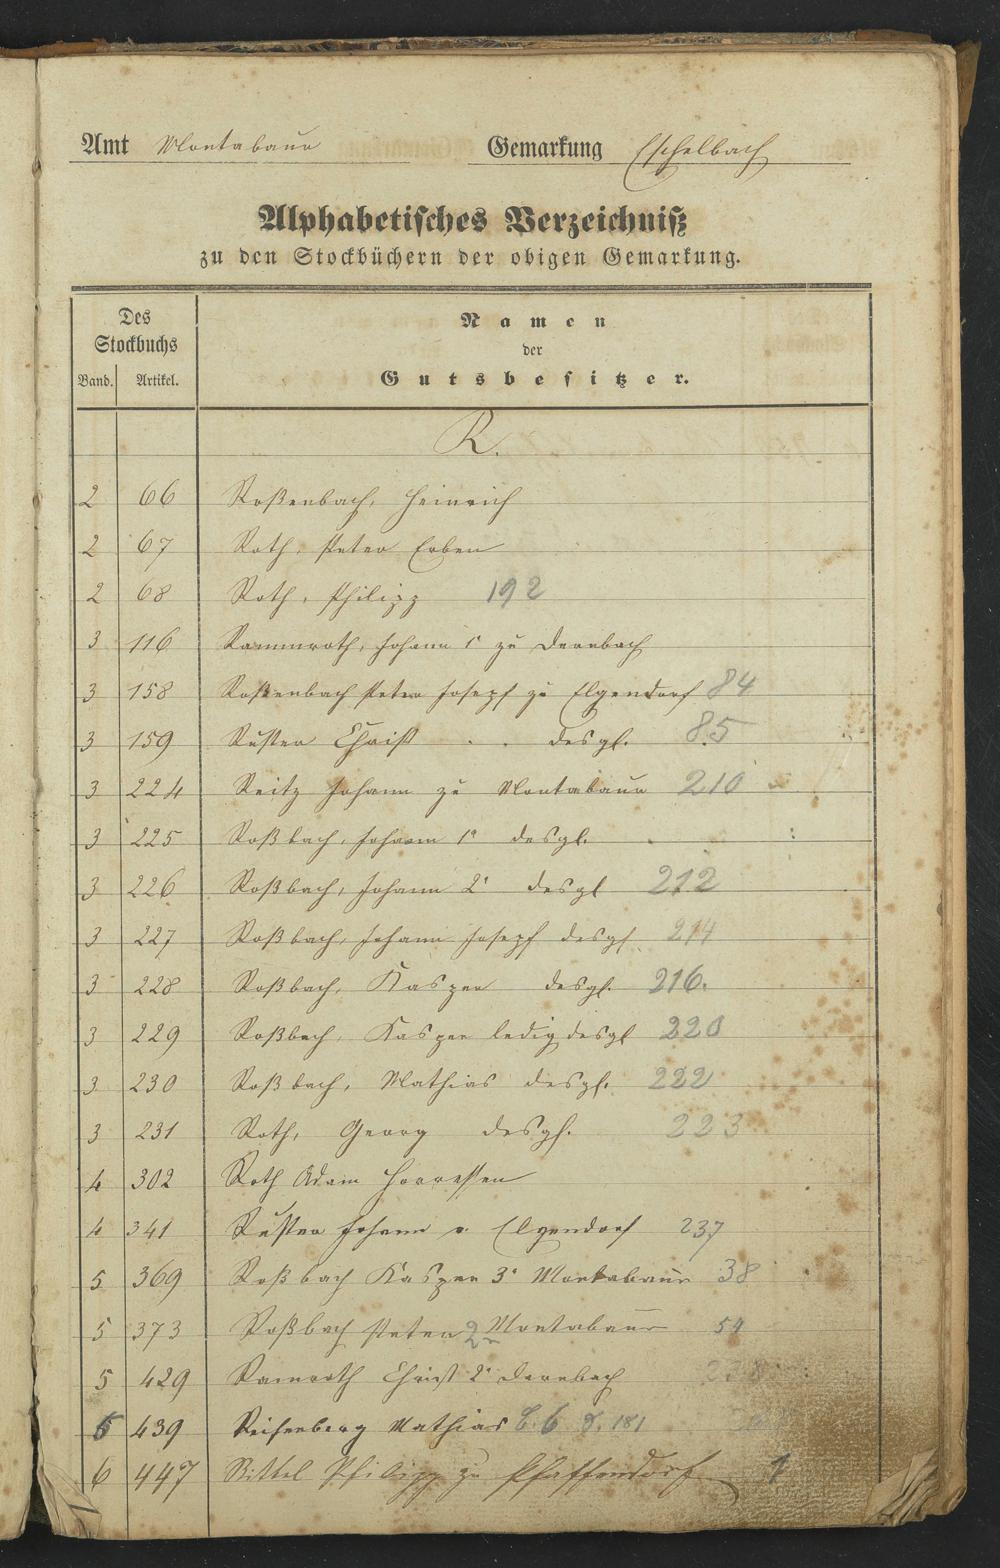 Amt Montabaur Gemarkung Eschelbach
Alphabetisches Verzeichniß
zu den Stockbüchern der obigen Gemarkung.
Des Stockbuchs
Band. Artikel.
Namen
der
Gutsbesitzer.
R.
2 66 Roßenbach, Heinrich
2 67 Roth, Peter Erben
2 68 Roth, Philipp 192
3 116 Rammroth, Johann 1r zu Dernbach
3 158 Roßenbach Peter Josepf zu Elgendorf 84
3 159 Ruster Christ desgl. 85
3 224 Reitz Johann zu Montabaur 210
3 225 Roßbach, Johann 1r desgl.
3 226 Roßbach, Johann 2r desgl 212
3 227 Roßbach, Johann Josepf desgl. 214
3 228 Roßbach, Kasper desgl. 216.
3 229 Roßbach, Kasper ledig desgl 220
3 230 Roßbach, Mathias desgl. 222
3 231 Roth, Georg desgl. 223
4 302 Roth Adam Horressen
4 341 Ruster Johann v. Elgendorf 237
5 369 Roßbach Kasper 3r Montabaur 38
5 373 Roßbach Peter 2r Montabaur 54
5 429 Ramroth Christ 2r Dernbach 228
6 439 Reifenberg Mathias B. 6 S. 181
6 447 Philipp zu Pfaffendorf 1